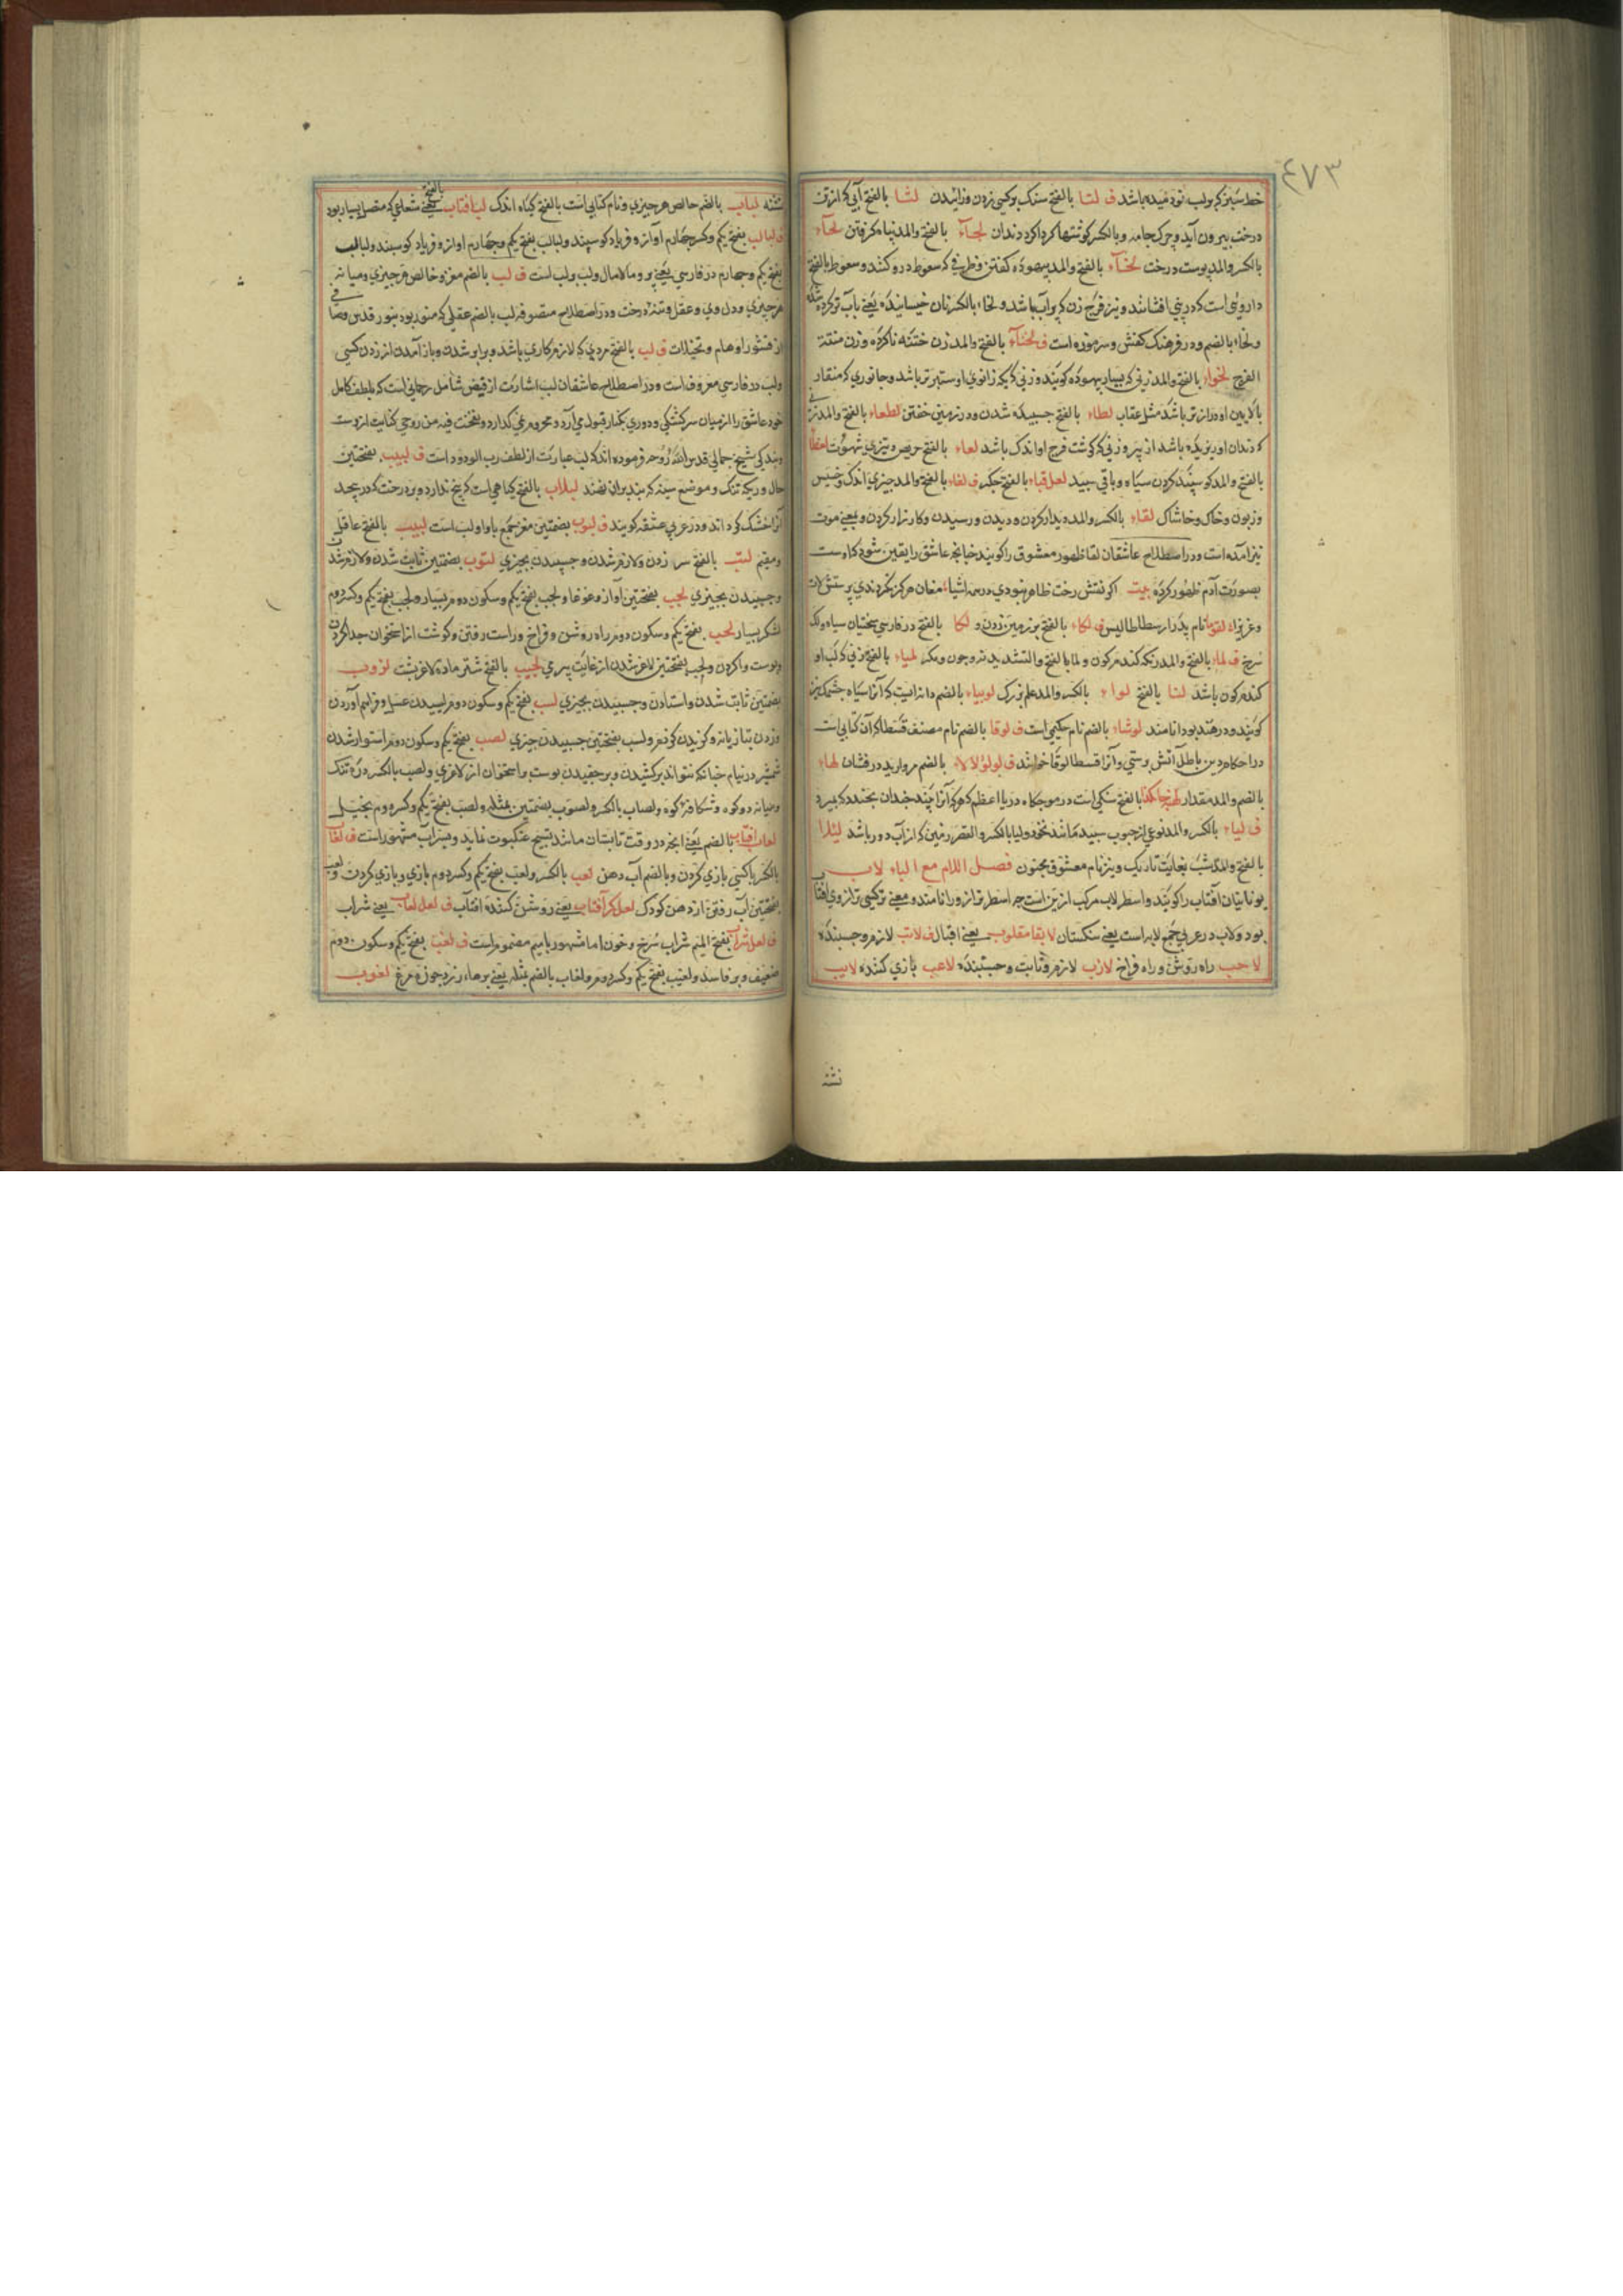 ٤٧٣
خط سبز كه بر لب نو دميده باشد ف لتا بالفتح سنك بر كسي زدن و زائيدن لثا بالفتح آبي كه از تن
درخت بيرون آيد و چرك جامه و بالكسر كوشتها كرداكرد دندان لجآء بالفتح والمد پناه كرفتن لحآء
بالكسر والمد پوست درخت لخآء بالفتح والمد بيهوده كفتن و ظرفي كه سعوط درو كنند و سعوط بالفتح
داروئي است كه در بيني افشانند و نيز فرج زن كه پر آب باشد و لخاء بالكسر نان خيسانيده يعني بآب تر كرده شده
و لخاء بالضم و در فرهنك كفش و سر موزه است ف لخنآء بالفتح والمد زن ختنه ناكرده و زن منتنة
الفرج لخواء بالفتح والمد زني كه بسيار بيهوده كويد و زني كه يك زانوي او ستبرتر باشد و جانوري كه منقار
بالايين او درازتر باشد مثل عقاب لطاء بالفتح چسپيده شدن و در زمين خفتن لطعاء بالفتح والمد زني
كه دندان او ريزيده باشد از پيري و زني كه كوشت فرج او اندك باشد لعاء بالفتح حريص و تيزي شهوت
بالفتح والمد كوسپند كردن سياه و باقي سپيد بالفتح ف لفاء بالفتح والمد چيزي اندك و خسيس
و زبون و خاك و خاشاك لقاء بالكسر والمد ديدار كردن و ديدن و رسيدن و كارزار كردن و بمعني موت
نيز آمده است و در اصطلاح عاشقان لقا ظهور معشوق را كويند چنانچه عاشق را يقين شود كه اوست
بصورت آدم ظهور كرده بيت اكر نقش رخت ظاهر نبودي در همه اشيا مغان هركز نكردندي پرستش لات
و عزي را نام پدر ارسطاطاليس ف لكاء بالفتح بر زمين زدن و لكا بالفتح در فارسي سختيان سياه و لك
سرخ ف لماء بالفتح والمد رنك كندم كون و لما بالفتح والتشديد نه و چون و مكر لمياء بالفتح زني كه لب او
كندم كون باشد لنا بالفتح لواء بالكسر والمد علم بزرك لوبياء بالضم دانه ايست كه آنرا سياه چشمك نيز
كويند و در هند نامند لوشاء بالضم نام حكيمي است ف لوقا بالضم نام مصنف قسطا كه آن كتابي است
در احكام دين باطل آتش پرستي و آنرا قسطا لوقا خوانند ف لولؤ لالاء بالضم مرواريد درفشان لهاء
بالضم والمد مقدار بالفتح سنكي است در موجكاه درياء اعظم كه هر كه آنرا بيند چندان بخندد كه بميرد
ف لياء بالكسر والمد نوعي از حبوب سپيد مانند نخود و ليا بالكسر والقصر زمين كه از آب دور باشد ليلا
بالفتح والمد شب بغايت تاريك و نيز نام معشوق مجنون فصل اللام مع الباء لاب
يونانيان آفتاب را كويند و اسطرلاب مركب ازين است چه اسطر ترازو را نامند و معني تركيبي ترازوي آفتاب
بود و لاب در عربي جمع لابه است يعني سنكستان لابقا مقلوب يعني اقبال ف لاتب لازم و چسپنده
لاحب راه روشن و راه فراخ لازب لازم و ثابت و چسپنده لاعب بازي كننده لايب
نشنه
تشنه لباب بالضم خالص هر چيزي و نام كتابي است بالفتح كياه اندك لب آفتاب بالفتح يعني شعاعي كه متصل بسيار بود
ف لبالب بفتح يكم و كسر چهارم آواز و فرياد كوسپند و لبالب بفتح يكم و چهارم آواز و فرياد كوسپند و لبالب
بفتح يكم و چهارم در فارسي يعني پر و مالامال و لب بر لب است ف لب بالضم مغز و خالص هر چيزي و ميانه
هر چيزي و دل وي و عقل و تنه درخت و در اصطلاح متصوفه لب بالضم عقلي كه منور بود بنور قدس و صافي
از قشور اوهام و تخيلات ف لب بالفتح مردي كه لازم كاري باشد و برابر شدن و باز آمدن از زدن كسي
و لب در فارسي معروف است و در اصطلاح عاشقان لب اشارت از فيض شامل رحماني است كه بلطف كامل
خود عاشق را از ميان سركشتكي و دوري بكنار قبول مي آرد و محروم نمي كذارد و نفخت فيه من روحي كنايت ازوست
و بندكي شيخ جمالي قدس الله روحه فرموده اند كه لب عبارت از لطف رب الودود است ف لبب بفتحتين
حال و ريك تنك و موضع سينه كه بند بران نهند لبلاب بالفتح كياهي است كه بيخ ندارد و بر درخت كه در پيچد
آنرا خشك كرداند و در عربي عشقه كويند ف لبوب بضمتين مغز جمع با واو لب است لبيب بالفتح عاقل
و مقيم لتب بالفتح سر زدن و لازم شدن و چسپيدن بچيزي لتوب بضمتين ثابت شدن و لازم شدن
و چسپيدن بچيزي لجب بفتحتين آواز و غوغا و لجب بفتح يكم و سكون دوم بسيار و لجب بفتح يكم و كسر دوم
لشكر بسيار لحب بفتح يكم و سكون دوم راه روشن و فراخ و راست رفتن و كوشت از استخوان جدا كردن
و پوست وا كردن و لحب بفتحتين لاغر شدن از غايت پيري لحيب بالفتح شتر ماده لاغر پشت لزوب
بضمتين ثابت شدن و استادن و چسپيدن بچيزي لسب بفتح يكم و سكون دوم ليسيدن عسل و فراهم آوردن
و زدن بتازيانه و كزيدن كژدم و لسب بفتحتين چسپيدن چيزي لصب بفتح يكم و سكون دوم استوار شدن
شمشير در نيام چنانكه نتواند بر كشيدن و بر چفيدن پوست باستخوان از لاغري و لصب بالكسر دره تنك
و ميانه دو كوه و شكاف كوه و لصاب بالكسر و لصوب بضمتين مثله و لصب بفتح يكم و كسر دوم بخيل
لعاب آفتاب بالضم يعني انچه در وقت تابستان مانند تنيده عنكبوت نمايد و سراب مشهور است ف لعاب
بالكسر با كسي بازي كردن و بالضم آب دهن لعب بالكسر و لعب بفتح يكم و كسر دوم بازي و بازي كردن و لعب
بفتحتين آب رفتن از دهن كودك لعل كر آفتاب يعني روشن كننده آفتاب ف لعل لعاب يعني شراب
ف لعل شراب بفتح الميم شراب سرخ و خون اما مشهور با ميم مضموم است ف لغب بفتح يكم و سكون دوم
ضعيف و پر فاسد و لغب بفتح يكم و كسر دوم و لغاب بالضم مثله يعني پرهاء ريزه چوزه مرغ لغوب